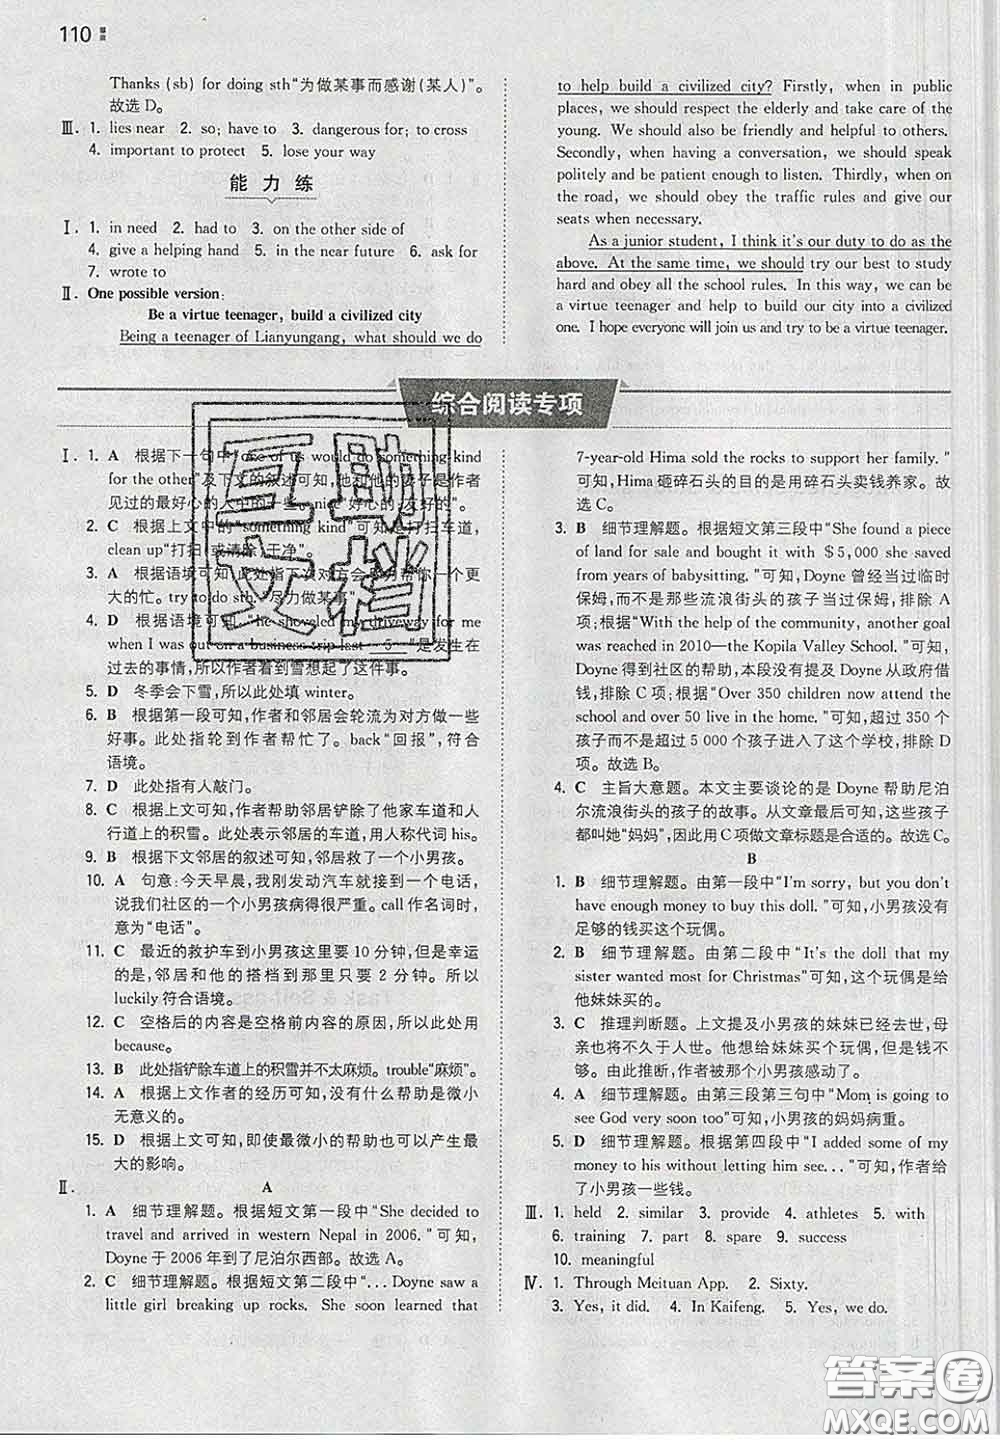 110
Thanks (sb) for doing sth“为做某事而感谢(某人)”。
故选 D。
Ⅲ. 1. lies near 2. so; have to 3. dangerous for; to cross
4. important to protect 5. lose your way
能 力 练
Ⅰ. 1. in need 2. had to 3. on the other side of
4. give a helping hand 5. in the near future 6. ask for
7. wrote to
Ⅱ. One possible version:
Be a virtue teenager, build a civilized city
Being a teenager of Lianyungang, what should we do
to help build a civilized city? Firstly, when in public
places, we should respect the elderly and take care of the
young. We should also be friendly and helpful to others.
Secondly, when having a conversation, we should speak
politely and be patient enough to listen. Thirdly, when on
the road, we should obey the traffic rules and give our
seats when necessary.
As a junior student, I think it's our duty to do as the
above. At the same time, we should try our best to study
hard and obey all the school rules. In this way, we can be
a virtue teenager and help to build our city into a civilized
one. I hope everyone will join us and try to be a virtue teenager.
综合阅读专项
Ⅰ. 1. A 根据下一句中“one of us would do something kind
for the other”及下文的叙述可知,他和他的妻子是作者
见过的最好心的人中的一些。nice“好心的,友好的”。
2. C 根据上文中的“something kind”可知是打扫车道,
clean up“打扫(或清除)干净”。
3. A 根据语境可知,此处指下次对方会努力帮你一个更
大的忙。try to do sth“尽力做某事”。
4. D 根据语境可知“he shoveled my driveway for me
when I was out on a business trip last 5 ”是发生在
过去的事情,所以作者看到雪想起了这件事。
5. D 冬季会下雪,所以此处填 winter。
6. B 根据第一段可知,作者和邻居会轮流为对方做一些
好事。此处指轮到作者帮忙了。back“回报”,符合
语境。
7. D 此处指有人敲门。
8. C 根据上文可知,作者帮助邻居铲除了他家车道和人
行道上的积雪。此处表示邻居的车道,用人称代词 his。
9. B 根据下文邻居的叙述可知,邻居救了一个小男孩。
10. A 句意:今天早晨,我刚发动汽车就接到一个电话,
说我们社区的一个小男孩病得很严重。call 作名词时,
意为“电话”。
11. C 最近的救护车到小男孩这里要 10 分钟,但是幸运
的是,邻居和他的搭档到那里只要 2 分钟。所以
luckily 符合语境。
12. C 空格后的内容是空格前内容的原因,所以此处用
because。
13. B 此处指铲除车道上的积雪并不太麻烦。trouble“麻烦”。
14. A 根据上文作者的经历可知,没有什么帮助是微小
无意义的。
15. D 根据上文可知,即使最微小的帮助也可以产生最
大的影响。
Ⅱ. A
1. A 细节理解题。根据短文第一段中“She decided to
travel and arrived in western Nepal in 2006.”可知,
Doyne 于 2006 年到了尼泊尔西部。故选 A。
2. C 细节理解题。根据短文第二段中“... Doyne saw a
little girl breaking up rocks. She soon learned that
7-year-old Hima sold the rocks to support her family.”
可知,Hima 砸碎石头的目的是用碎石头卖钱养家。故
选 C。
3. B 细节理解题。根据短文第三段中“She found a piece
of land for sale and bought it with $5,000 she saved
from years of babysitting.”可知,Doyne 曾经当过临时
保姆,而不是为那些流浪街头的孩子当过保姆,排除 A
项;根据“With the help of the community, another goal
was reached in 2010—the Kopila Valley School.”可知,
Doyne 得到社区的帮助,本段没有提及 Doyne 从政府借
钱,排除 C 项;根据“Over 350 children now attend the
school and over 50 live in the home.”可知,超过 350 个
孩子而不是超过 5 000 个孩子进入了这个学校,排除 D
项。故选 B。
4. C 主旨大意题。本文主要谈论的是 Doyne 帮助尼泊
尔流浪街头的孩子的故事。从文章最后可知,这些孩子
都叫她“妈妈”,因此用 C 项做文章标题是合适的。故选 C。
B
1. B 细节理解题。由第一段中“I'm sorry, but you don't
have enough money to buy this doll.”可知,小男孩没有
足够的钱买这个玩偶。
2. B 细节理解题。由第二段中“It's the doll that my
sister wanted most for Christmas”可知,这个玩偶是给
他妹妹买的。
3. C 推理判断题。上文提及小男孩的妹妹已经去世,母
亲也将不久于人世。他想给妹妹买个玩偶,让妈妈带给
她。由此推断,作者被这个小男孩感动了。
4. A 细节理解题。由第三段第三句中“Mom is going to
see God very soon too”可知,小男孩的妈妈病重。
5. D 细节理解题。根据第四段中“I added some of my
money to his without letting him see...”可知,作者给
了小男孩一些钱。
Ⅲ. 1. held 2. similar 3. provide 4. athletes 5. with
6. training 7. part 8. spare 9. success
10. meaningful
Ⅳ. 1. Through Meituan App. 2. Sixty.
3. Yes, it did. 4. In Kaifeng. 5. Yes, we do.
互助
文档
答案圈
MXQE.COM